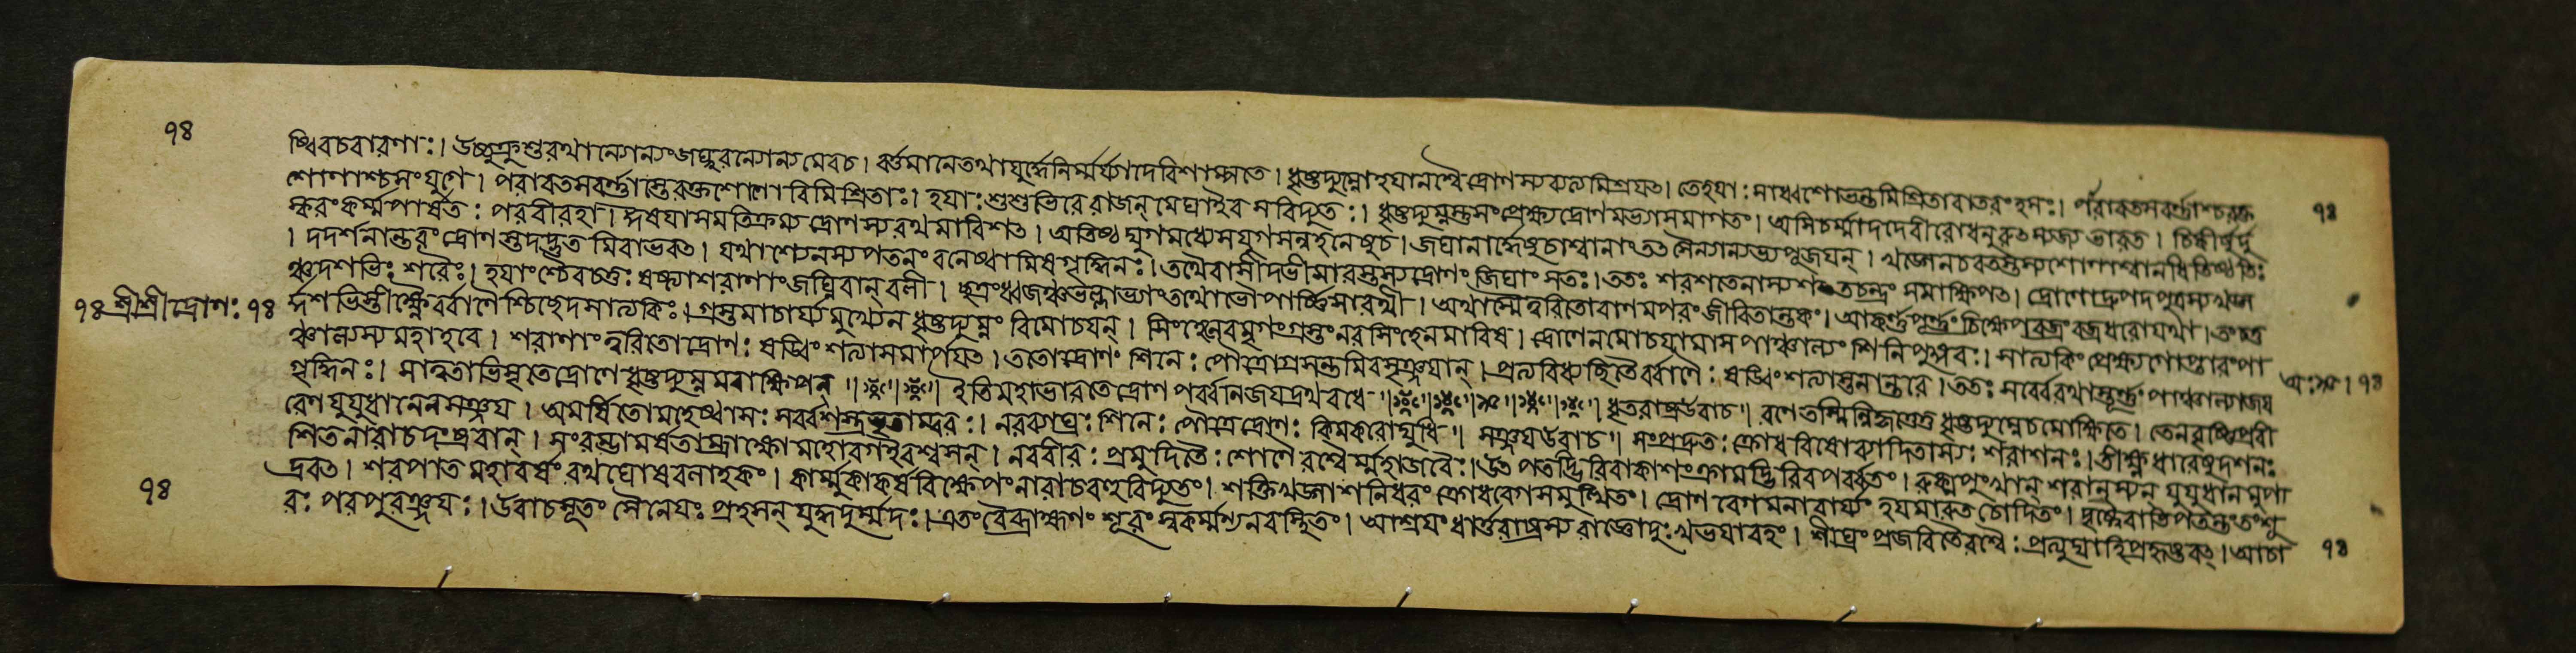 ৭৪
ষ্বিবচবারণাঃ। উচ্চুক্রুশুরথান্যোন্যংজঘ্নুরন্যোন্যমেবচ। বর্ত্তমানেতথাযুদ্ধেনির্ম্মর্য্যাদেবিশাম্পতে। ধৃষ্টদ্যুম্নোহযানশ্বৈর্দ্রোণস্যব্যত্যমিশ্রযত্। তেহযাঃ সাধ্বশোভন্তমিশ্রিতাবাতরংহসঃ। পরাবতসবর্ণ্ণাশ্চরক্ত
শোণাশ্চসংযুগে। পরাবতসবর্ণ্ণাস্তেরক্তশোণোবিমিশ্রিতাঃ। হযাঃশুশুভিরেরাজন্ মেঘাইব সবিদ্যুতঃ। ধৃষ্টদ্যুম্নস্তসংপ্রেক্ষ্যদ্রোণমভ্যাসমাগতং। অসিচর্ম্মাদদেবীরোধনুরুত্সৃজ্য ভারত। চিকীর্ষুর্দু ৭৪
স্করংকর্ম্মপার্ষতঃ পরবীরহা। ঈষযাসমতিক্রম্য দ্রোণস্যরথমাবিশত্। অতিষ্ঠদ্যুগমধ্যেসযুগসন্নহনেষুচ। জঘানার্দ্ধেষুচাশ্বানাংতত্সৈন্যান্যভ্যপূজযন্। খড্গেনচরতস্তস্যশোণাশ্বানধিতিষ্ঠতিঃ
। দদর্শনান্তরংদ্রোণস্তদদ্ভুতমিবাভবত্। যথাশ্যেনস্যপতনংবনেষ্বামিষগৃদ্ধিনঃ। তথৈবাসীদভীসারস্তস্যদ্রোণং জিঘাংসতঃ। ততঃ শরশতেনাস্যশতচন্দ্রং সমাক্ষিপত্। দ্রোণোদ্রুপদপুত্রস্যখড্গ
ঞ্চদশভিঃ শরৈঃ। হযাংশ্চৈবচতুঃষষ্ট্যাশরাণাংজঘ্নিবান্ বলী। ছত্রংধ্বজঞ্চভল্লাভ্যাংতথোভৌপার্ষ্ণিসারথী। অথাস্মৈত্বরিতোবাণমপরংজীবিতান্তকং। আকর্ণ্ণপূর্ণ্ণংচিক্ষেপবজ্রংবজ্রধরোযথা। তংচতু
৭৪ শ্রীশ্রীদ্রোণঃ ৭৪ র্দ্দশভিস্তীক্ষ্ণৈর্ব্বাণৈশ্চিছেদসাত্যকিঃ। গ্রস্তমাচার্য্যমুখ্যেন ধৃষ্টদ্যুম্নং বিমোচযন্। সিংহেনেবমৃগংগ্রস্তংনরসিংহেনমারিষ। দ্রোণেনমোচযামাসপাঞ্চাল্যং শিনিপুঙ্গবঃ। সাত্যকিংপ্রেক্ষ্যগোপ্তারংপা
ঞ্চাল্যস্যমহাহবে। শরাণাংত্বরিতোদ্রোণঃ ষড্বিংশত্যাসমার্পযত্। ততোদ্রোণং শিনেঃ পৌত্রোগ্রসন্তমিবসৃঞ্জযান্। প্রত্যবিধ্যচ্ছিতৈর্ব্বাণৈঃ ষড্বিংশত্যাস্তনান্তরে। ততঃ সর্ব্বেরথাস্তূর্ণ্ণংপাঞ্চাল্যাজয অঃ। ৭৪
গৃদ্ধিনঃ। সাত্বতাভিসৃতেদ্রোণেধৃষ্টদ্যুম্নমবাক্ষিপন্॥ ইতিমহাভারতেদ্রোণপর্ব্বনিজযদ্রথবধে॥ ধৃতরাষ্ট্রউবাচ॥ বাণেতস্মিন্নিকৃত্তেতু ধৃষ্টদ্যুম্নেচমোক্ষিতে। তেনবৃষ্ণিপ্রবী
রেণযুযুধানেনসঞ্জয। অমর্ষিতোমহেষ্বাসঃ সর্ব্বশস্ত্রভৃতাম্বরঃ। নরব্যাঘ্রঃ শিনেঃ পৌত্রেদ্রোণঃ কিমকরোদ্যুধি॥ সঞ্জযউবাচ॥ সংপ্রদ্রুতঃ ক্রোধবিষোব্যাদিতাস্যঃ শরাশনঃ। তীক্ষ্ণধারেষুদশনঃ
শিতনারাচদংষ্ট্রবান্। সংরম্ভামর্ষতাম্রাক্ষোমহোরগইবশ্বসন্। নববীরঃ প্রমুদিতৈঃ শোণৈরশ্বৈর্ম্মহাজবৈঃ। উত্পতদ্ভিরিবাকাশংক্রামদ্ভিরিবপর্ব্বতং। রুক্মপুংখান্ শরানস্যন্ যুযুধানমুপা
দ্রবত্। শরপাতমহাবর্ষংরথঘোষবলাহকং। কার্ম্মুকাকর্ষবিক্ষেপংনারাচবহুবিদ্যুতং। শক্তিখড্গাশনিধরংক্রোধবেগসমুত্থিতং। দ্রোণবেগমনাবার্য্যং হযমারুতচোদিতং। দৃষ্ট্বৈবাভিপতন্তংতংশূ
৭৪ রঃ পরপুরঞ্জযঃ। উবাচসূতং শৈনেযঃ প্রহসন্ যুদ্ধদুর্ম্মদঃ। এতংবৈব্রাহ্মণং শূরংস্বকর্ম্মণ্যনবস্থিতং। আশ্রযংধার্ত্তরাষ্ট্রস্যরাজ্ঞোদুঃখভযাবহং। শীঘ্রং প্রজবিতৈরশ্বৈঃ প্রত্যুদ্যাহিপ্রহৃষ্টবত্। আচা ৭৪